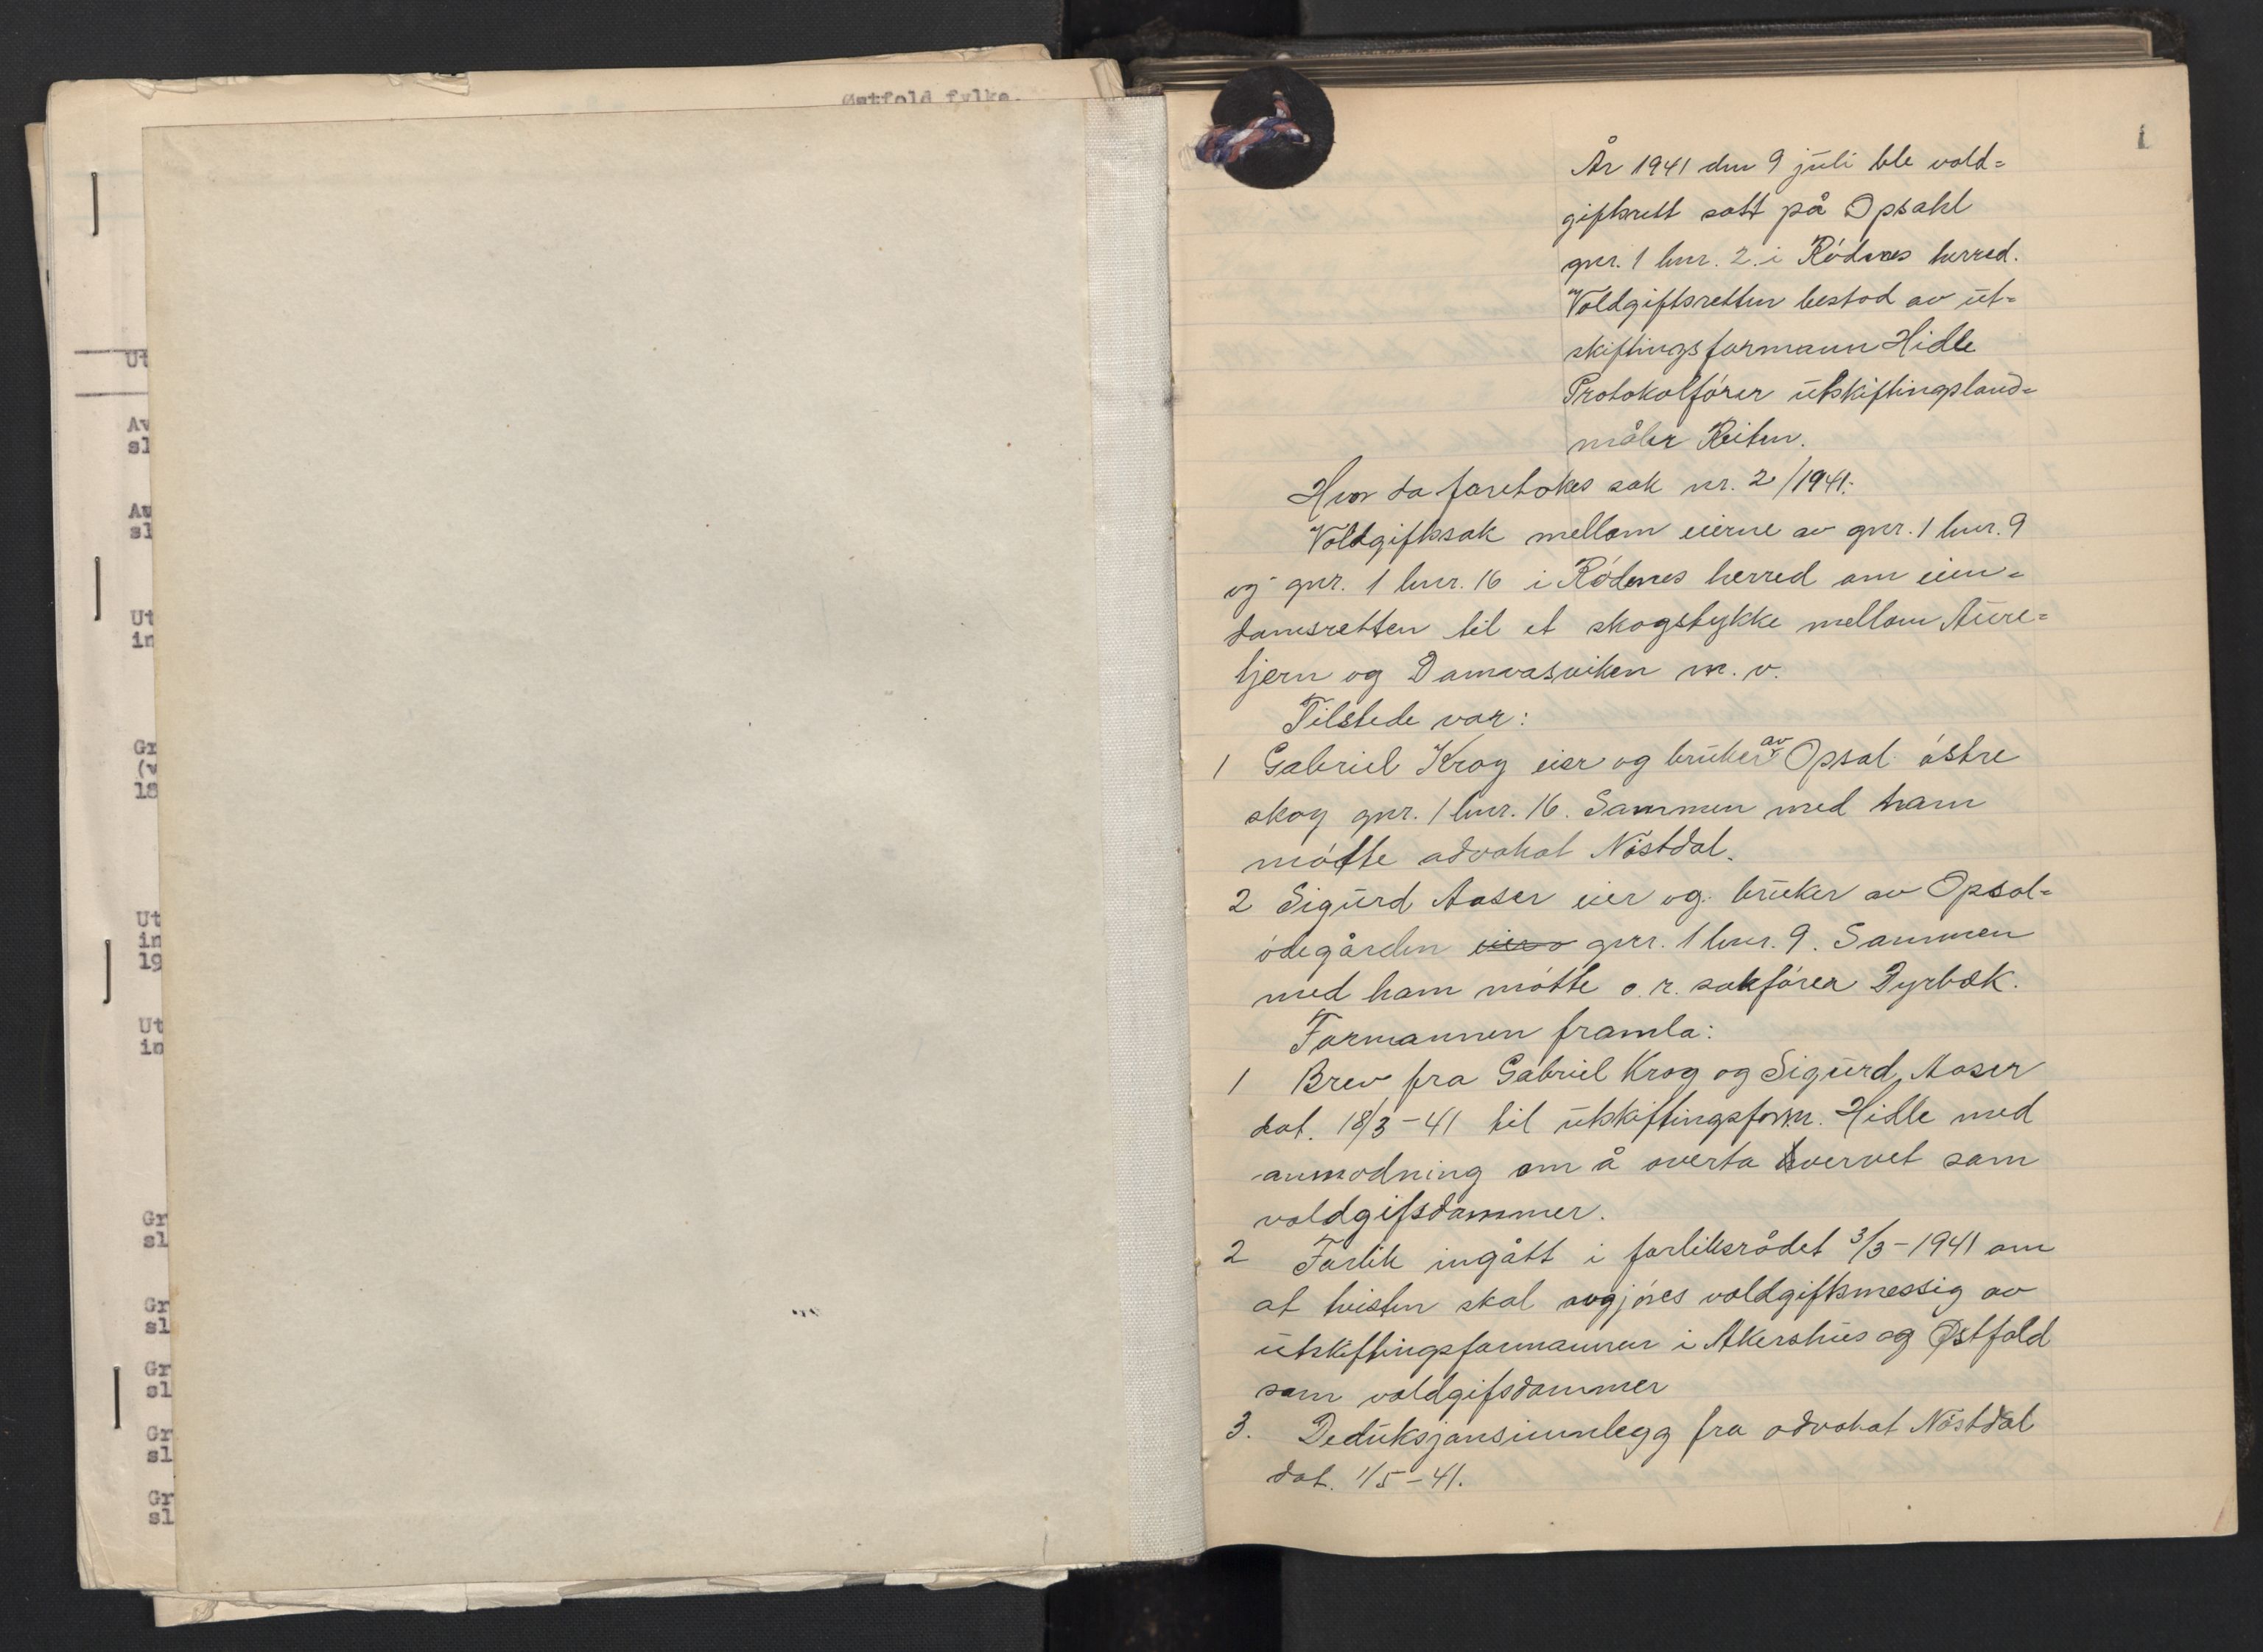 Østfold fylke.
Ut
Av
sl
Av
sl
Ut
in
Gr
18
Ut
in
19
Ut
in
Gr
sl
Gr
sl
Gr
sl
Gr
sl
Gr
sl
1
År 1941 den 9 juli ble vold=
giftsrett satt på Opsahl
gnr. 1 bnr. 2 i Rødenes herred.
Voldgiftsretten bestod av ut=
skiftingsformann Hidle
Protokolfører utskiftingsland=
måler Reiten.
Hvor da foretokes sak nr. 2/1941:
Voldgiftssak mellom eierne av gnr. 1 bnr. 9
og gnr. 1 bnr. 16 i Rødenes herred om eien=
domsretten til et skogstykke mellom Aure=
tjern og Damvasviken m. v.
Tilstede var:
1 Gabriel Krog eier og bruker av Opsal østre
skog gnr. 1 bnr. 16. Sammen med ham
møtte advokat Nøstdal.
2 Sigurd Aaser eier og bruker av Opsal=
ødegården gnr. 1 bnr. 9. Sammen
med ham møtte o. r. sakfører Dyrbæk.
Formannen framla:
1 Brev fra Gabriel Krog og Sigurd Aaser
dat. 18/3-41 til utskiftingsform. Hidle med
anmodning om å overta hvervet som
voldgifsdommer.
2 Forlik ingått i forliksrådet 3/3-1941 om
at tvisten skal avgjøres voldgiftsmessig av
utskiftingsformannen i Akershus og Østfold
som voldgifsdommer
3. Deduksjonsinnlegg fra advokat Nøstdal
dat. 1/5-41.